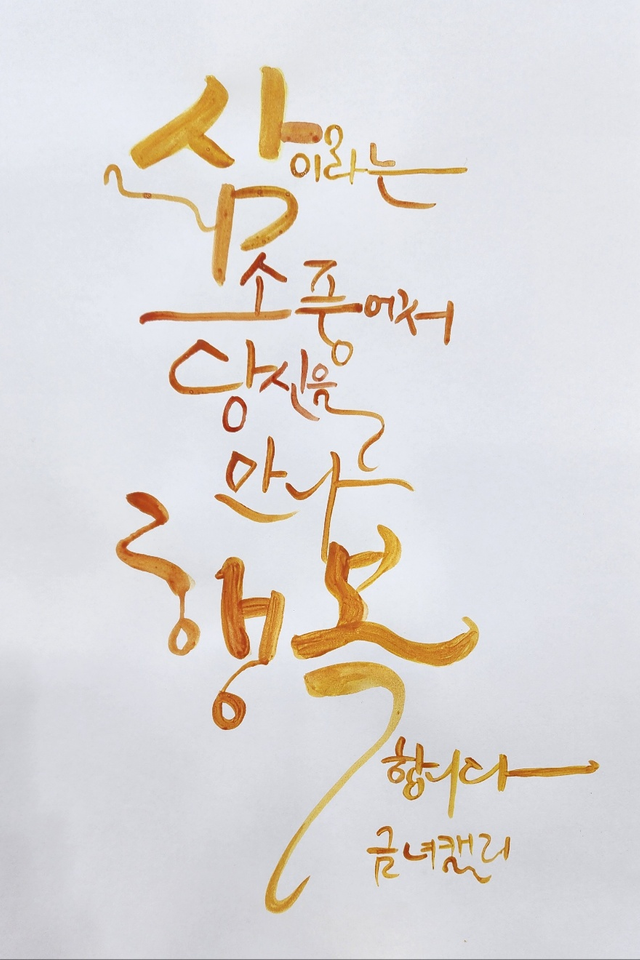 삶이라는
소풍에서
당신을
만나
행복
합니다
금녀캘리